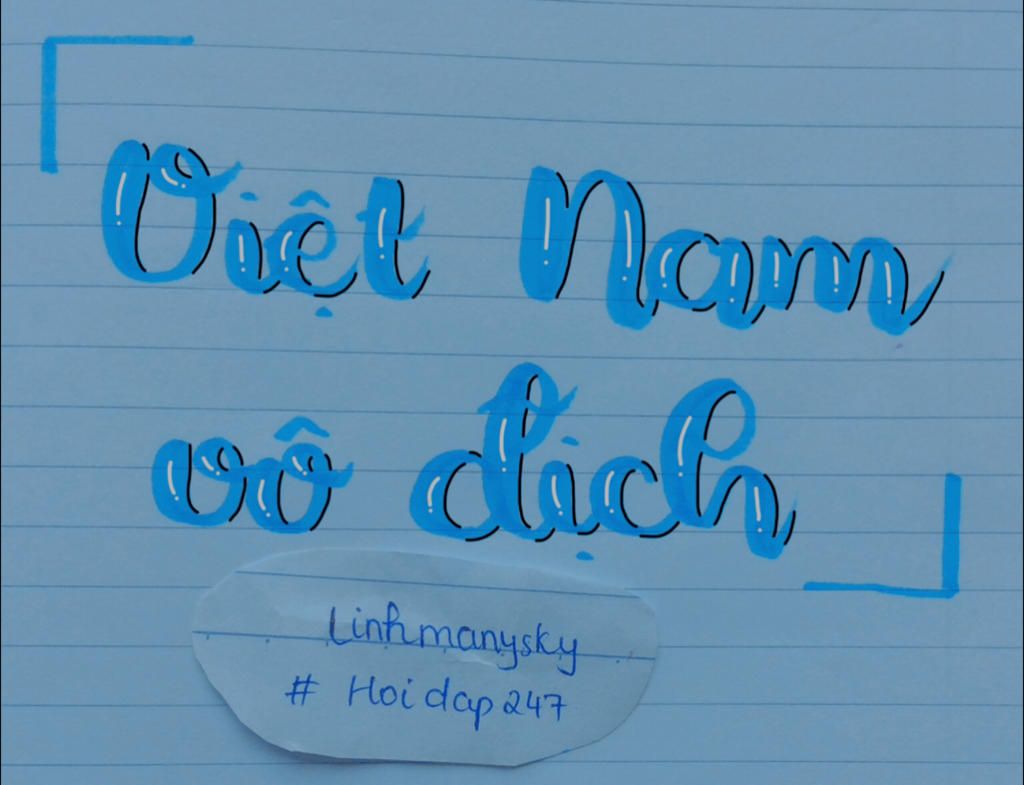 Việt Nam
vô địch
Linhmanysky
# Hoidap247